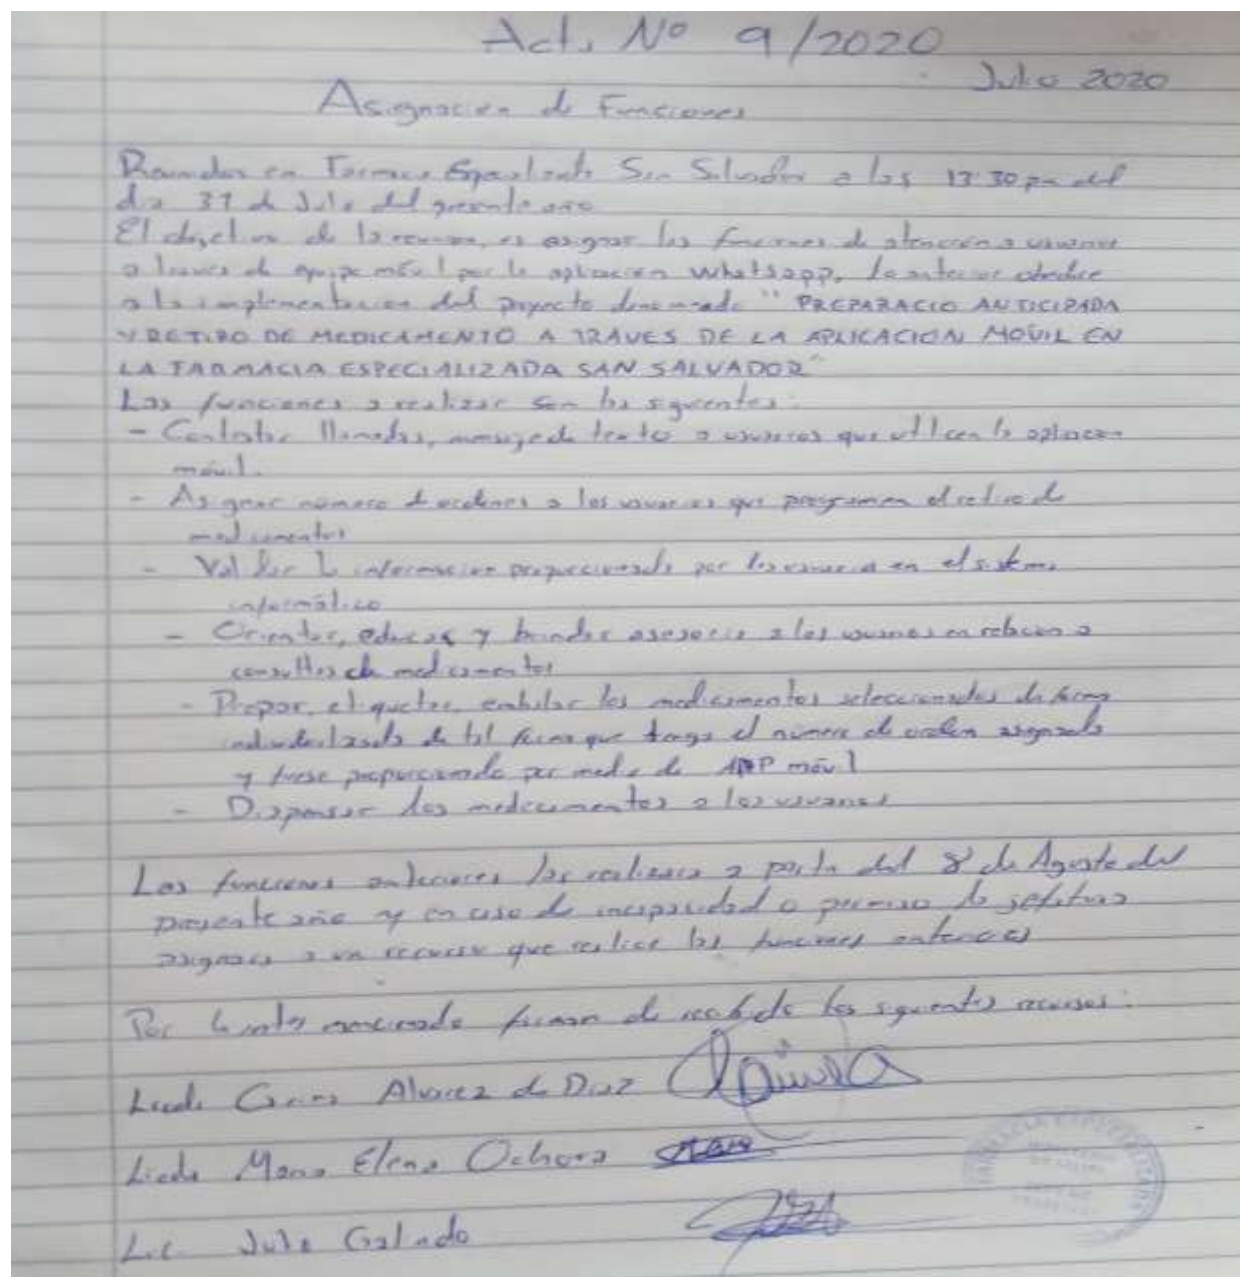 Acta Nº 9/2020
Julio 2020
Asignación de Funciones
Reunidos en Farmacia Especializada San Salvador a las 13:30 pm del
día 31 de Julio del presente año
El objetivo de la reunion, es asignar las funciones de atención a usuarios
a traves de equipo móvil por la aplicación whatsapp, lo anterior obedece
a la implementacion del proyecto denominado "PREPARACIO ANTICIPADA
Y RETIRO DE MEDICAMENTO A TRAVES DE LA APLICACION MOVIL EN
LA FARMACIA ESPECIALIZADA SAN SALVADOR"
Las funciones a realizar son las siguientes:
- Contestar llamadas, mensaje de texto a usuarios que utilicen la aplicacion
móvil.
- Asignar numero de ordenes a los usuarios que programen el retiro de
medicamentos
- Validar la informacion proporcionada por los usuarios en el sistema
informático
- Orientar, educar y brindar asesoria a los usuarios en relacion a
consultas de medicamentos
- Preparar, etiquetar, embalar los medicamentos seleccionados de forma
individualizada de tal forma que tenga el número de orden asignado
y fuese proporcionado por medio de APP móvil
- Dispensar los medicamentos a los usuarios
Las funciones anteriores las realizara a partir del 8 de Agosto del
presente año y en caso de incapacidad o permiso la jefatura
asignara a un recurso que realice las funciones anteriores
Por lo antes mencionado firman de recibido los siguientes recursos:
Licda Alvarez de Diaz
Licda Maria Elena Ochoa
Lic. Julio Galado
FARMACIA ESPECIALIZADA